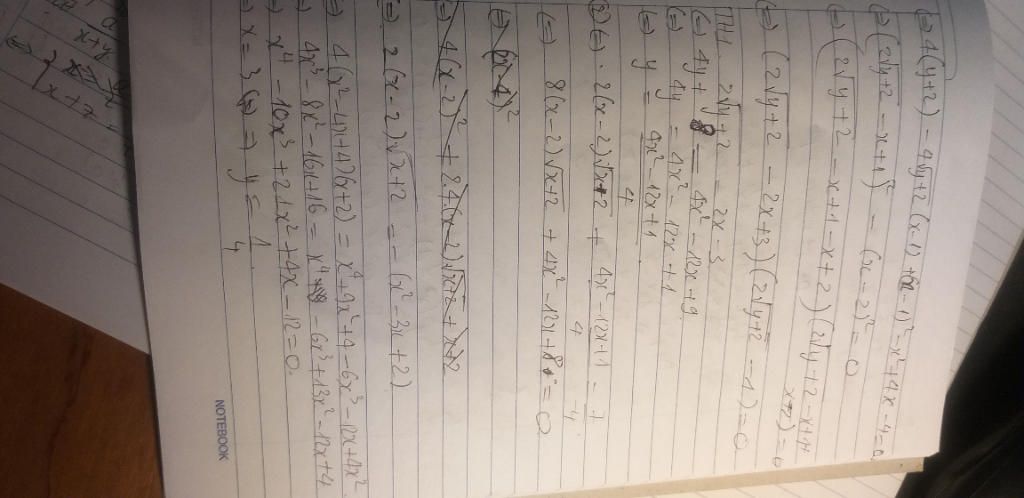 (=) 4(y+2) - 4√y+2 (x-1) + (x-1)² - x² + 4x - 4 = 0
(=) (2√y+2 - x+1)² - (x-2)² = 0
(=) (2√y+2 - x+1 - x+2)(2√y+2 - x+1+x-2) = 0
(=) (2√y+2 - 2x+3)(2√y+2 - 1) = 0
TH1: 2√y+2 = 2x-3
(=) 4y+8 = 4x² - 12x+9
(=) 4y = 4x² - 12x+1
(=) y = 4x² - 12x+1 / 4
(2) (=) 2(x-2)√x+2 + 4x² - 12x+1 / 4 = -7 / 4
(=) 8(x-2)√x+2 + 4x² - 12x+8 = 0
(=) (x-4)²
(=) 4(x-2)² + 2.4(x-2)√x+2 + x+2
(=) 2(x-2)√x+2 = -(x² - 3x+2)
(=) 4(x² - 4x+4)(x+2) = x⁴+9x²+4 - 6x³ - 12x+4x²
(=) 4x³ - 8x² - 16x+16 = x⁴ - 6x³+13x² - 12x+4
(=) x⁴ - 10x³ + 21x² + 4x - 12 = 0
(=) x = 3 (=) y = 1 / 4
NOTEBOOK